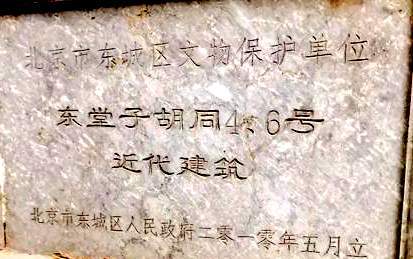 北京市东城区文物保护单位
东堂子胡同4、6号
近代建筑
北京市东城区人民政府二零一零年五月立